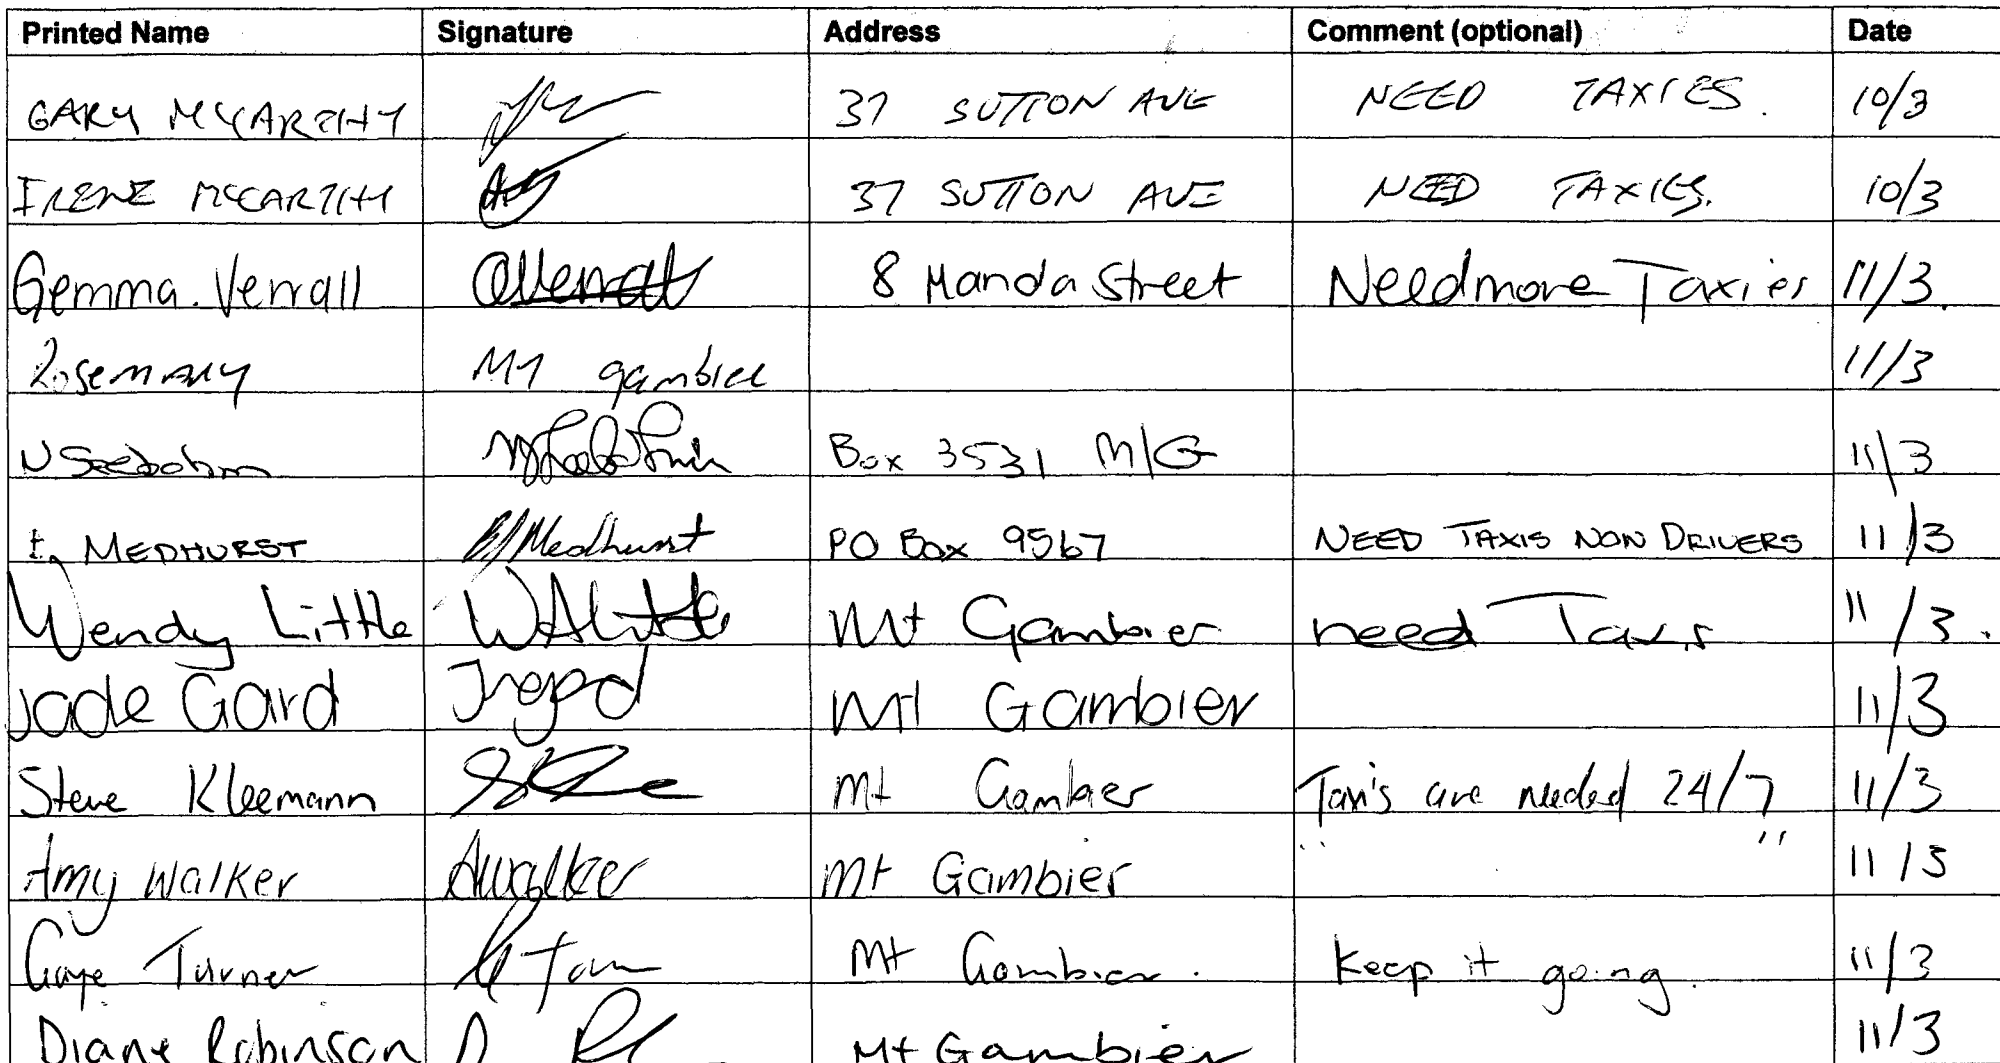 Printed Name Signature Address Comment (optional) Date
GARY MCCARTHY 37 SUTTON AVE NEED TAXIES. 10/3
IRENE MCCARTHY 37 SUTTON AVE NEED TAXIES. 10/3
Gemma. Verrall 8 Manda Street Need more Taxies 11/3.
Rosemary Mt gambier 11/3
N Seebohm Box 3531 M/G 11/3
E, MEDHURST BJMedhurst PO Box 9567 NEED TAXIS NON DRIVERS 11/3
Wendy Little WALittle Mt Gambier need Taxis 11/3.
Jade Gard Mt Gambier 11/3
Steve Kleemann Mt Gambier Taxi's are needed 24/7 11/3
Amy Walker Awalker Mt Gambier " " 11/3
Gaye Turner Mt Gambier. Keep it going. 11/3
Diane Robinson Mt Gambier 11/3